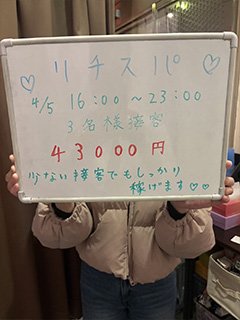 リチスパ
4/5 16:00～23:00
3名様接客
43000円
少ない接客でもしっかり
稼げます♡♡